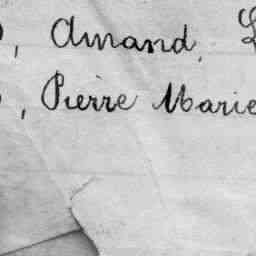 , Amand,
, Pierre Marie